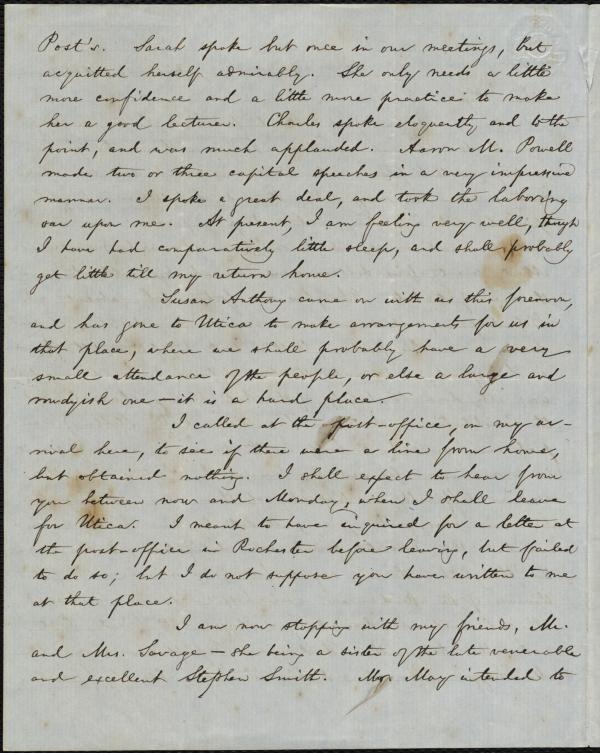 Post's. Sarah spoke but once in our meetings, but
acquitted herself admirably. She only needs a little
more confidence and a little more practice to make
her a good lecturer. Charles spoke eloquently and to the
point, and was much applauded. Aaron M. Powell
made two or three capital speeches in a very impressive
manner. I spoke a great deal, and took the laboring
oar upon me. At present, I am feeling very well, though
I have had comparatively little sleep, and shall probably
get little till my return home.
Susan Anthony came on with us this forenoon,
and has gone to Utica to make arrangements for us in
that place, where we shall probably have a very
small attendance of the people, or else a large and
rowdyish one — it is a hard place.
I called at the post-office, on my ar-
rival here, to see if there were a line from home,
but obtained nothing. I shall expect to hear from
you between now and Monday, when I shall leave
for Utica. I meant to have inquired for a letter at
the post-office in Rochester before leaving, but failed
to do so; but I do not suppose you have written to me
at that place.
I am now stopping with my friends, Mr.
and Mrs. Savage — she being a sister of the late venerable
and excellent Stephen Smith. Mr. May intended to